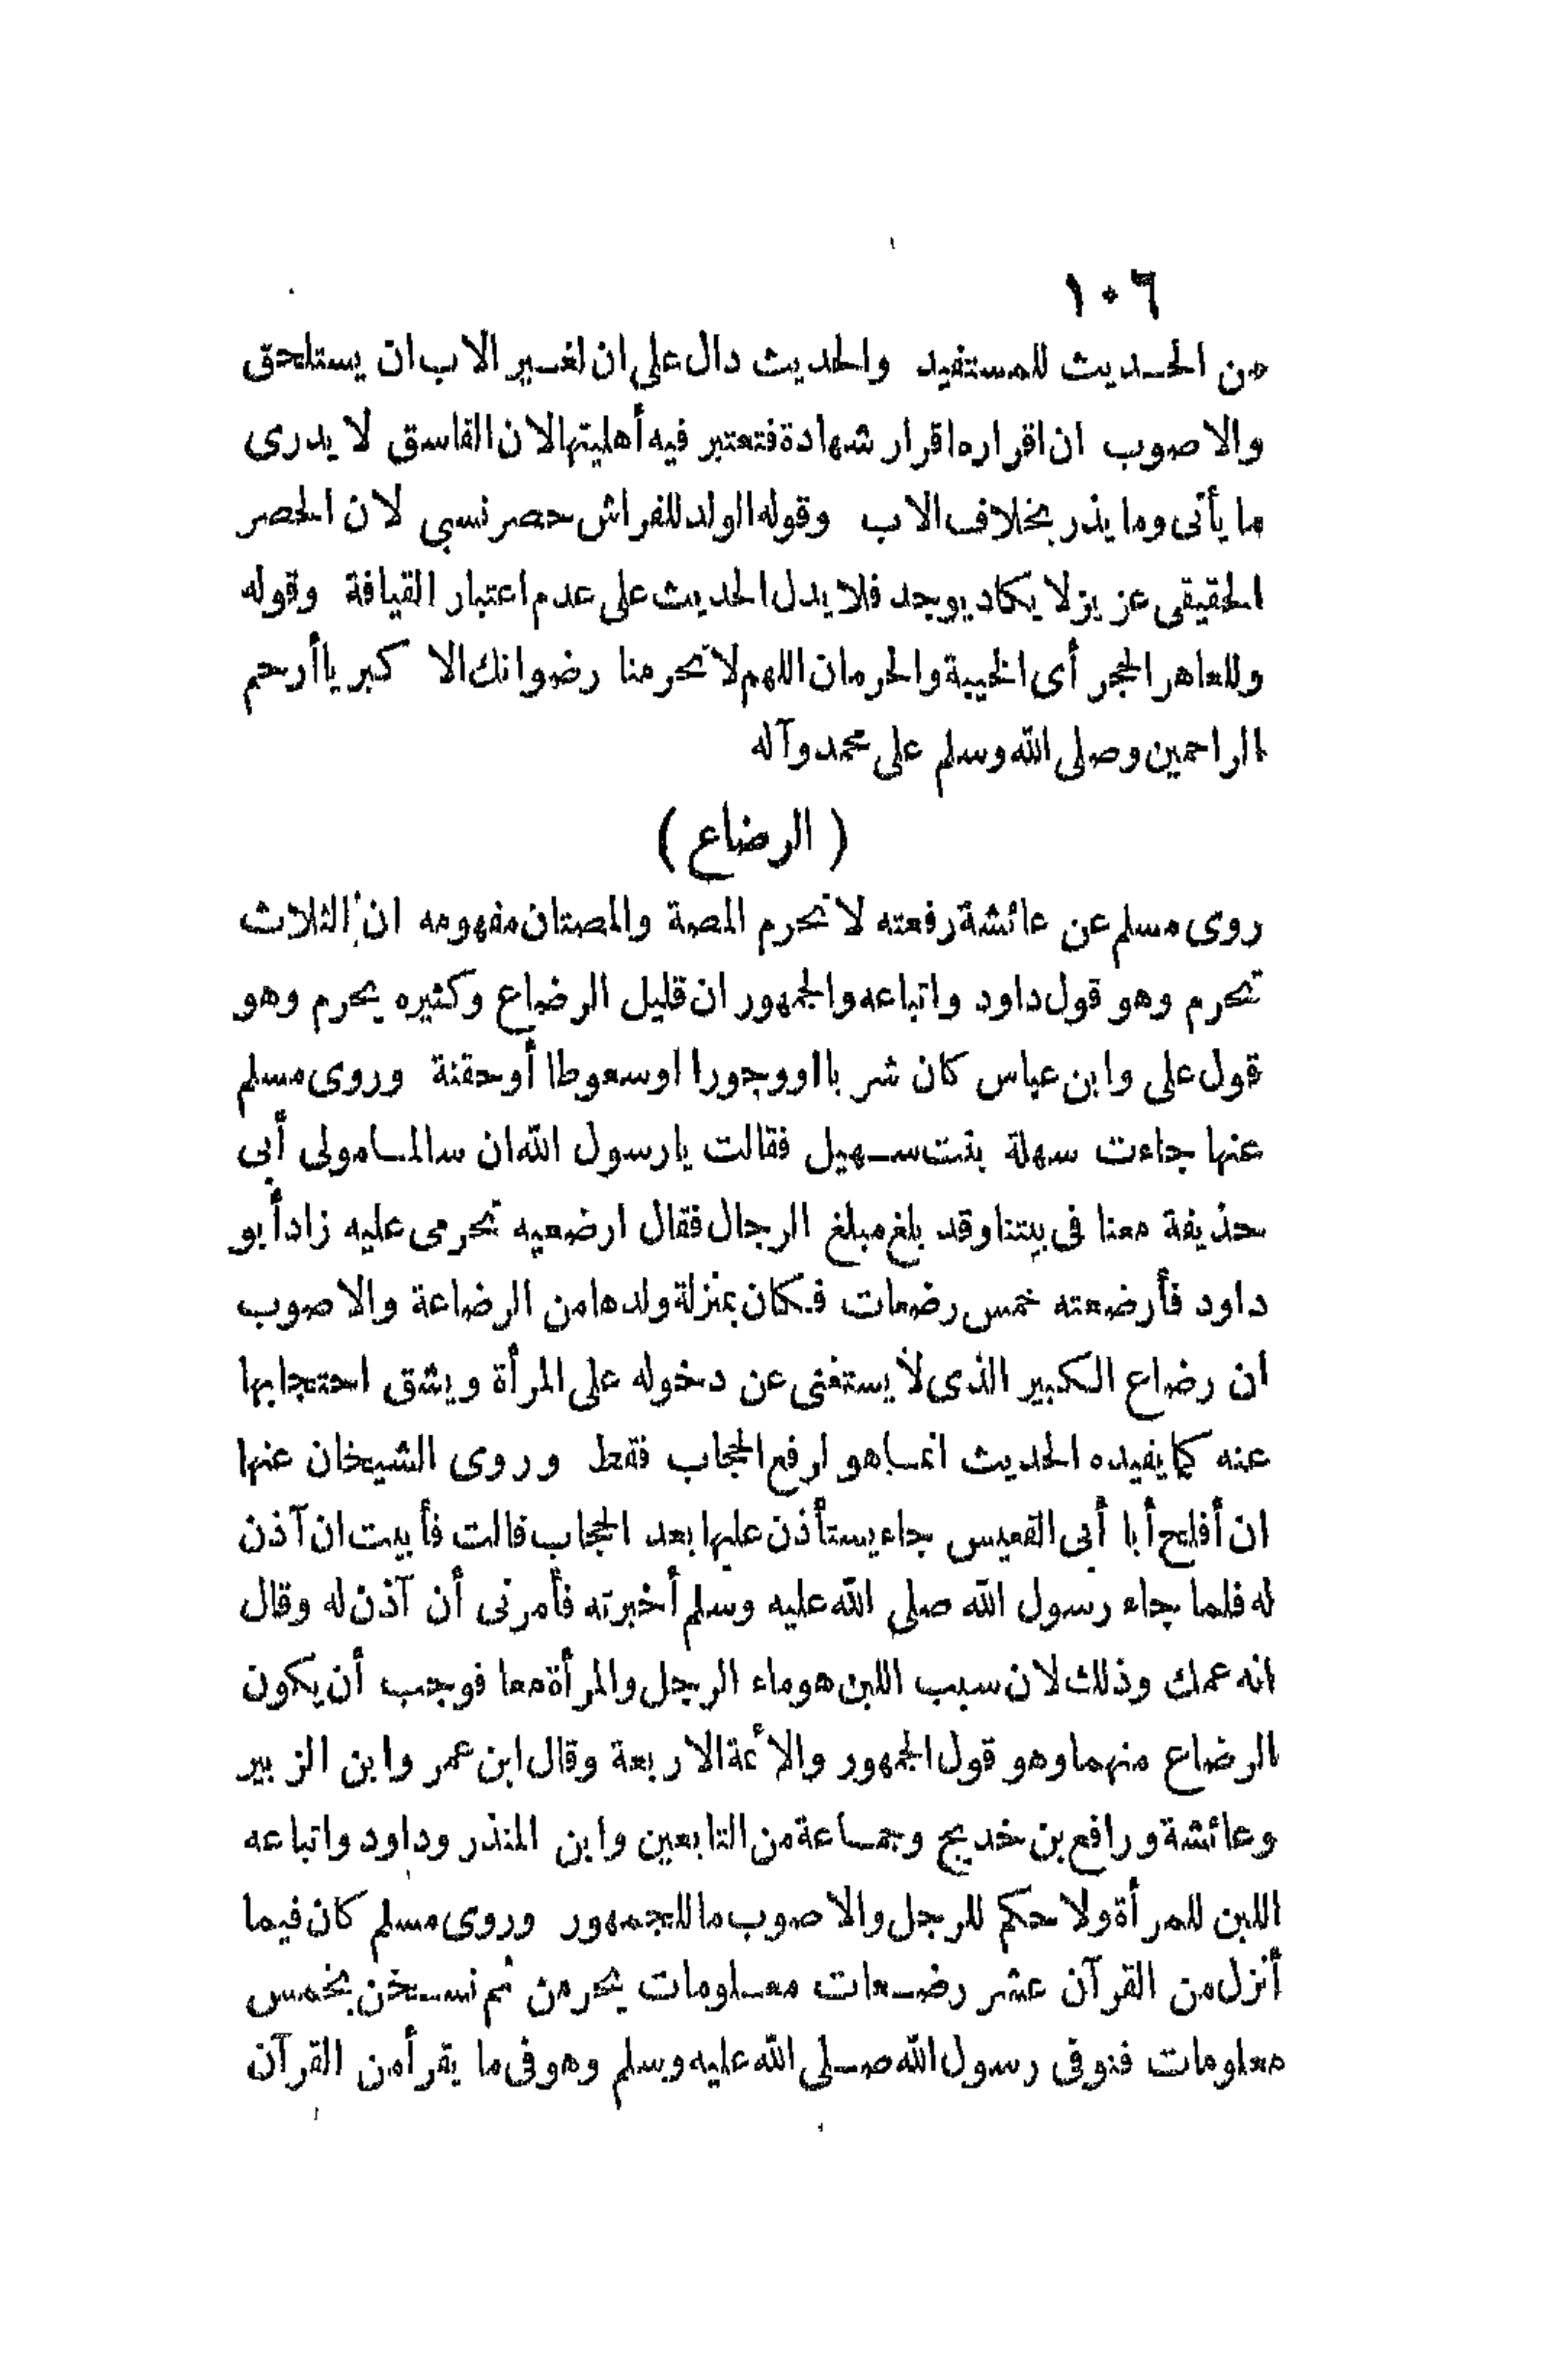 ١٠٦
من الحديث للمستفيد والحديث دال على ان لغير الاب ان يستلحق
والاصوب ان اقراره اقرار شهادة فتعتبر فيه أهليتها لان الفاسق لا يدرى
ما يأتى وما يذر بخلاف الاب وقوله الولد للفراش حصر نسبي لان الحصر
الحقيقى عزيز لا يكاد يوجد فلا يدل الحديث على عدم اعتبار القيافة وقوله
وللعاهر الحجر أى الخيبة والحرمان اللهم لا تحرمنا رضوانك الاكبر يا أرحم
الراحمين وصلى الله وسلم على محمد وآله
( الرضاع )
روى مسلم عن عائشة رفعته لا تحرم المصة والمصتان مفهومه ان الثلاث
تحرم وهو قول داود واتباعه والجمهور ان قليل الرضاع وكثيره يحرم وهو
قول على وابن عباس كان شربا او وجورا او سعوطا أو حقنة وروى مسلم
عنها جاءت سهلة بنت سهيل فقالت يا رسول الله ان سالما مولى أبى
حذيفة معنا فى بيتنا وقد بلغ مبلغ الرجال فقال ارضعيه تحرمى عليه زاد أبو
داود فأرضعته خمس رضعات فكان بمنزلة ولدها من الرضاعة والاصوب
ان رضاع الكبير الذى لا يستغنى عن دخوله على المرأة ويشق احتجابها
عنه كما يفيده الحديث انما هو لرفع الحجاب فقط وروى الشيخان عنها
ان أفلح أبا أبى القعيس جاء يستأذن عليها بعد الحجاب قالت فأبيت ان آذن
له فلما جاء رسول الله صلى الله عليه وسلم أخبرته فأمرنى أن آذن له وقال
انه عمك وذلك لان سبب اللبن هو ماء الرجل والمرأة معا فوجب أن يكون
الرضاع منهما وهو قول الجمهور والائمة الاربعة وقال ابن عمر وابن الزبير
وعائشة ورافع بن خديج وجماعة من التابعين وابن المنذر وداود واتباعه
اللبن للمرأة ولا حكم للرجل والاصوب ما للجمهور وروى مسلم كان فيما
أنزل من القرآن عشر رضعات معلومات يحرمن ثم نسخن بخمس
معلومات فتوفى رسول الله صلى الله عليه وسلم وهو فى ما يقرأ من القرآن